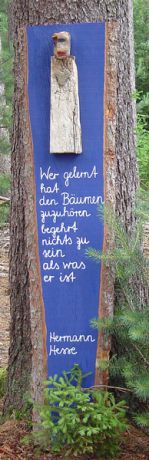 Wer gelernt
hat
den Bäumen
zuzuhören
begehrt
nichts zu
sein
als was
er ist
Hermann
Hesse